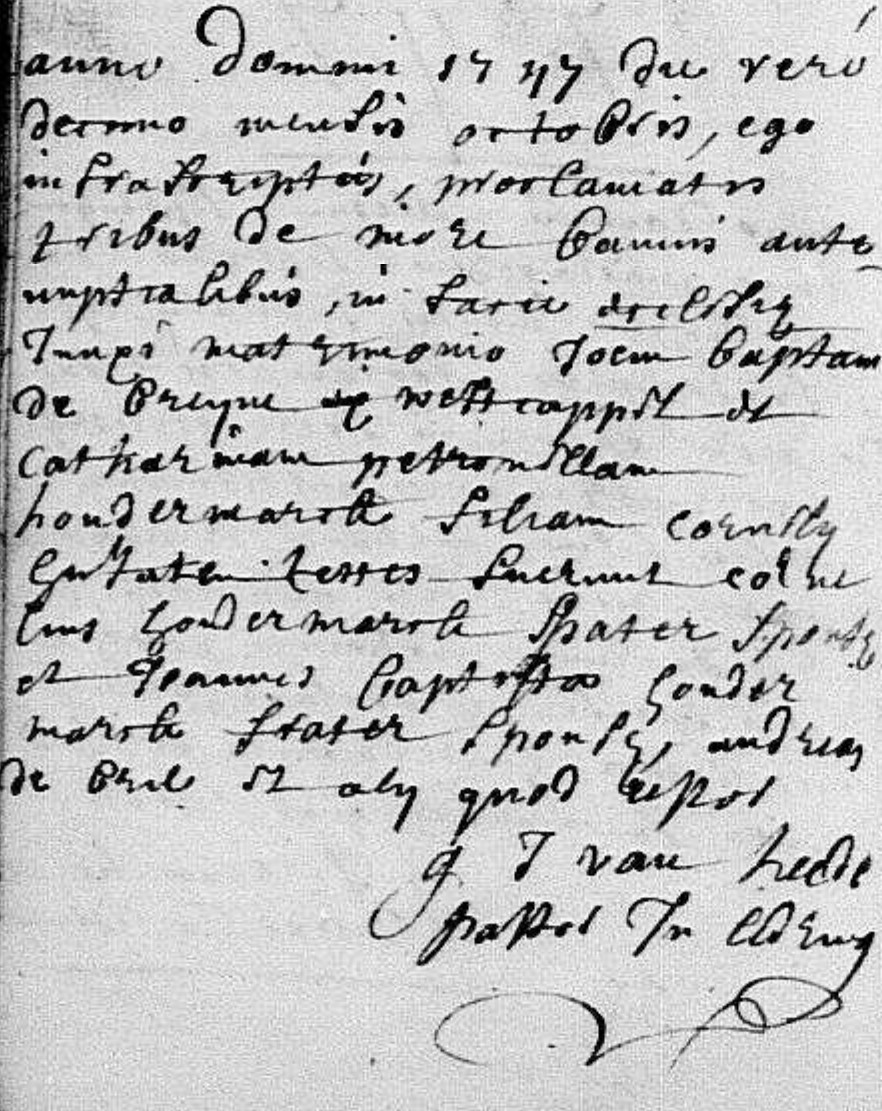 anno Domini 1747 die vero
decimo mensis octobris, ego
infrascriptus, proclamatis
tribus de more bannis ante
nuptialibus, in facie ecclesiæ
Junxi matrimonio Joem baptam
de breyne ex westcappel et
Catharinam petronillam
houdermarck filiam cornelÿ
testes fuerunt corne
lius houdermarck pater sponsæ
et Joannes baptista houder
marck frater sponsæ, andreas
de bril et alÿ quod testor
g J van heede
pastor In